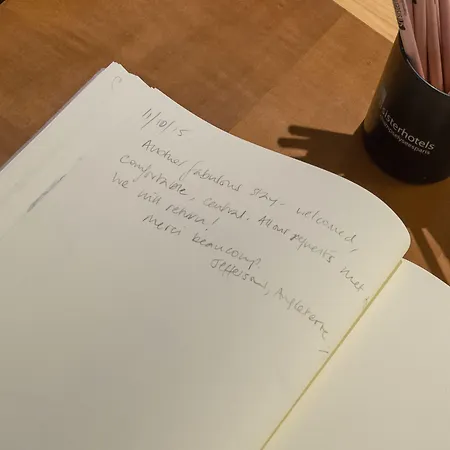 11/10/15
Another fabulous stay. Welcomed,
comfortable, central. All our requests met,
We will return!
Merci beaucoup.
Jefferson, Angleterre
sisterhotels